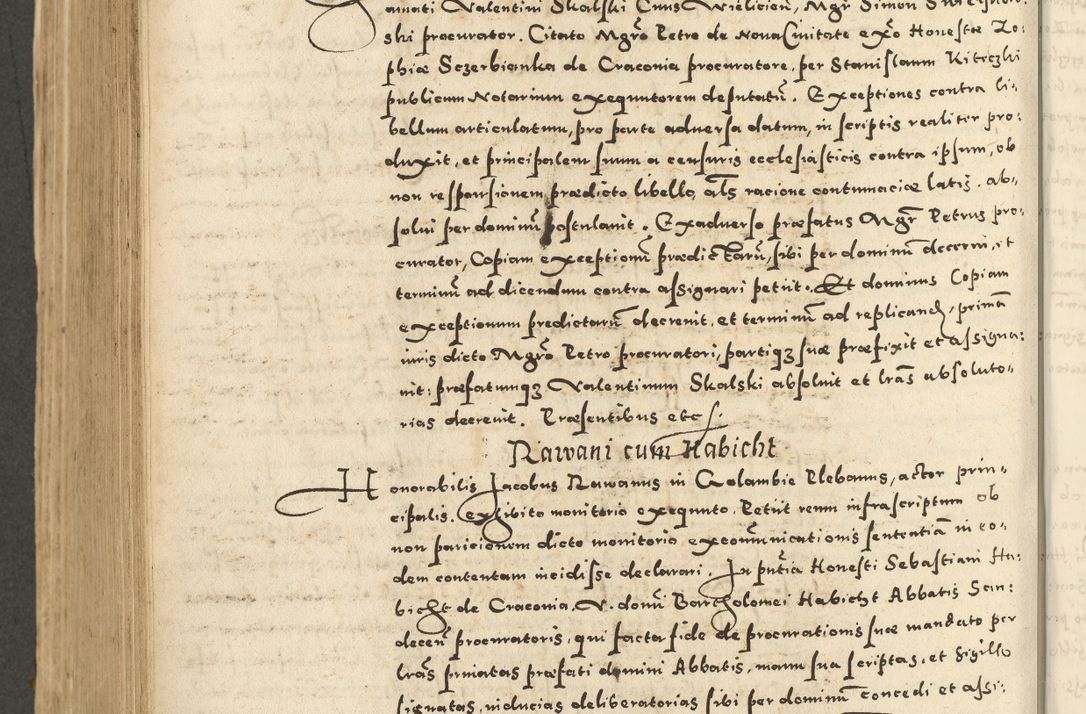 amati Valentini Skalski Ciuis Wieliciēn, Mgr Simon
ski procurator. Citato Mgrō Petro de Noua Ciuitate exō Honestæ Zo:
phiæ Sczerbianka de Craconia procuratore, per Stanislaum Kiteczki
publicum Notarium exequutorem deputatū. Exceptiones contra li-
bellum articulatum, pro parte aduersa datum, in scriptis realiter pro:
duxit, et principalem suum a censuris ecclesiasticis contra ipsum, ob
non responsionem prædicto libello, als racione contumaciæ latis, ab-
solui per dominū postulauit. Exaduerso præfatus Mgr Petrus pro:
curator, Copiam exceptionū prædictarū, sibi per dominū decerni, et
terminū ad dicendum contra assignari petiit. Et dominus Copiam
exceptionum predictarū decreuit, et terminū ad replicand, primā
iuris dicto Mgrō Petro procuratori, partiqȝ suæ præfixit et assigna:
uit: præfatumqȝ Valentinum Skalski absoluit et lrās absoluto-
rias decreuit. Præsentibus etc.
Rawani cum Habicht
Honorabilis Jacobus Rawanus in Golambie Plebanus, actor prin-
cipalis. exhibito monitorio exequuto. Petiit reum infrascriptum ob
non paricionem dicto monitorio excoīnunicationis sententiā in eo-
dem contentam incidisse declarari. In pn̄tia Honesti Sebastiani Ha:
bicht de Craconia, V. domī Bartholomei Habicht Abbatis San:
decēn procuratoris, qui facta fide de procurationis suæ mandato per
lrās priuatas præfati domini Abbatis, manu sua scriptas, et sigillo
signatas, inducias deliberatorias sibi per dominum concedi et assi: